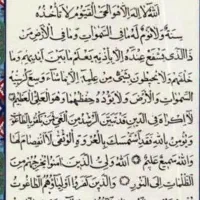 اللَّهُ لَا إِلَٰهَ إِلَّا هُوَ الْحَيُّ الْقَيُّومُ لَا تَأْخُذُهُ
سِنَةٌ وَلَا نَوْمٌ لَهُ مَا فِي السَّمَوَاتِ وَمَا فِي الْأَرْضِ مَنْ
ذَا الَّذِي يَشْفَعُ عِنْدَهُ إِلَّا بِإِذْنِهِ يَعْلَمُ مَا بَيْنَ أَيْدِيهِمْ وَمَا
خَلْفَهُمْ وَلَا يُحِيطُونَ بِشَيْءٍ مِنْ عِلْمِهِ إِلَّا بِمَا شَاءَ وَسِعَ كُرْسِيُّهُ
السَّمَوَاتِ وَالْأَرْضَ وَلَا يَؤُدُهُ حِفْظُهُمَا وَهُوَ الْعَلِيُّ الْعَظِيمُ
لَا إِكْرَاهَ فِي الدِّينِ قَدْ تَبَيَّنَ الرُّشْدُ مِنَ الْغَيِّ فَمَنْ يَكْفُرْ بِالطَّاغُوتِ
وَيُؤْمِنْ بِاللَّهِ فَقَدِ اسْتَمْسَكَ بِالْعُرْوَةِ الْوُثْقَى لَا انْفِصَامَ لَهَا
وَاللَّهُ سَمِيعٌ عَلِيمٌ اللَّهُ وَلِيُّ الَّذِينَ آمَنُوا يُخْرِجُهُمْ مِنَ
الظُّلُمَاتِ إِلَى النُّورِ وَالَّذِينَ كَفَرُوا أَوْلِيَاؤُهُمُ الطَّاغُوتُ